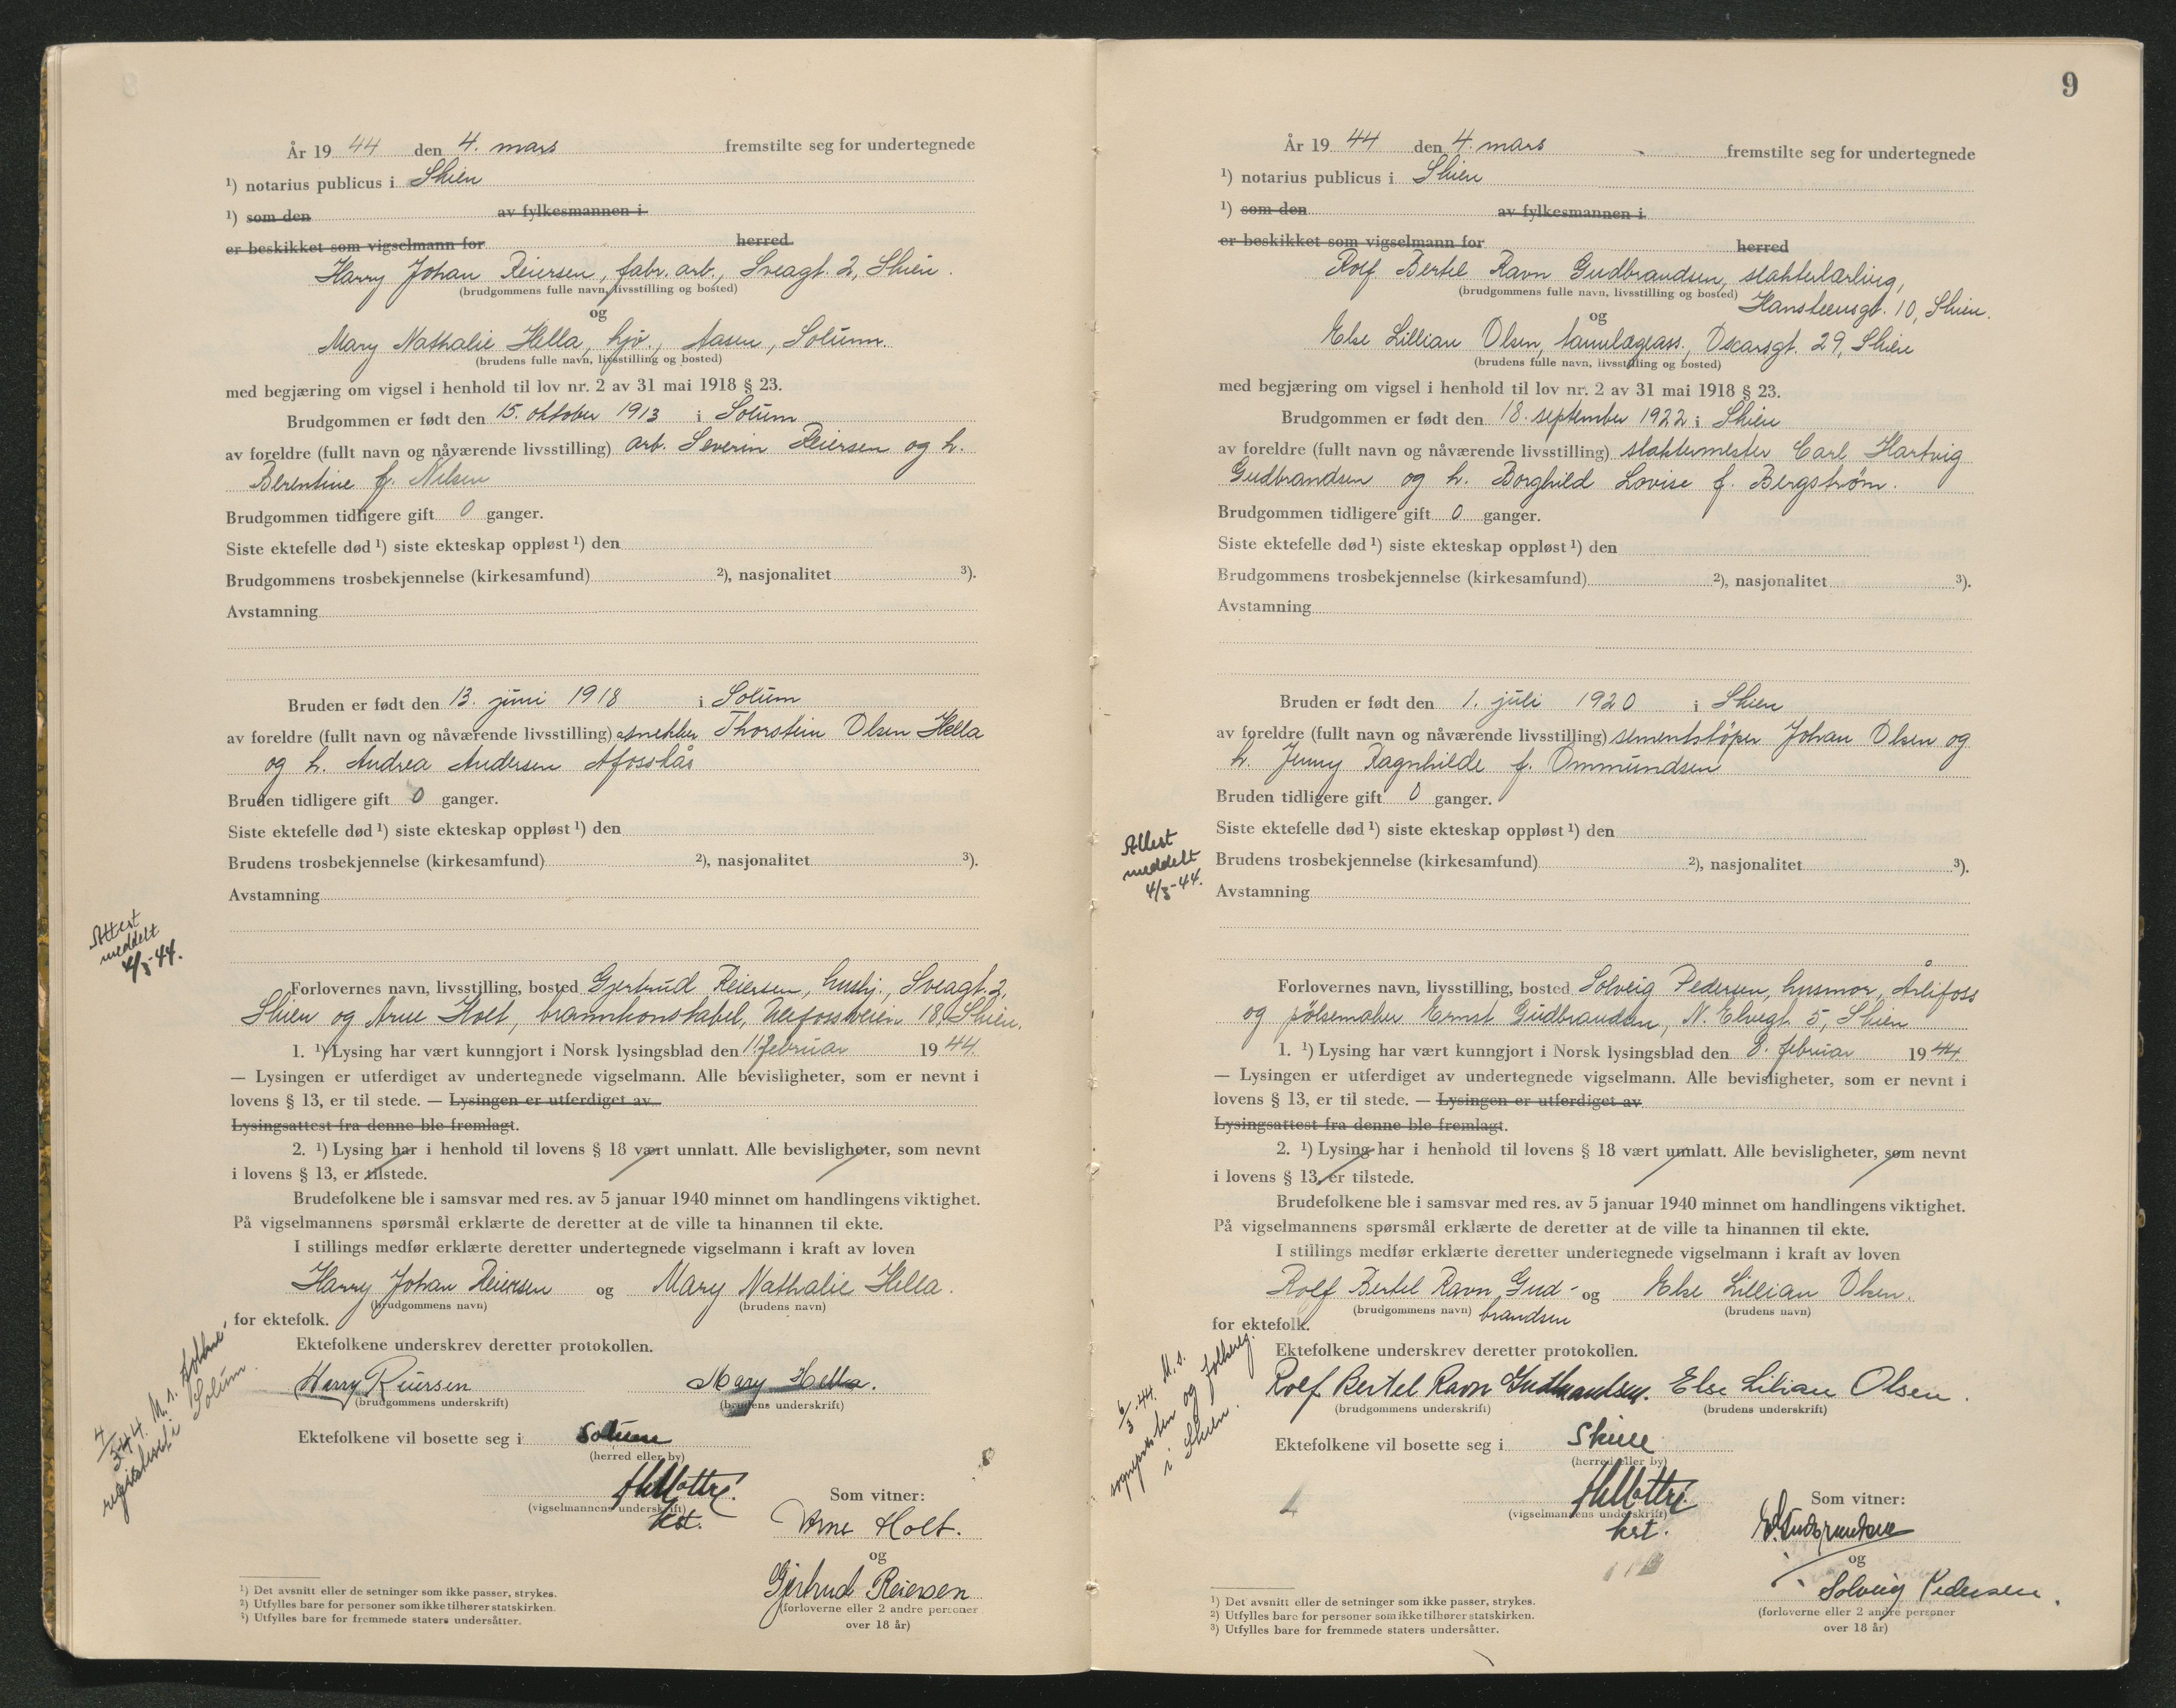 År 19 44 den 4. mars fremstilte seg for undertegnede
¹) notarius publicus i Skien
¹) som den av fylkesmannen i
er beskikket som vigselmann for herred
Harry Johan Reiersen, fabr. arb., Sveagt. 2, Skien.
(brudgommens fulle navn, livsstilling og bosted)
og
Mary Nathalie Hella, hjv., Aasen, Solum.
(brudens fulle navn, livsstilling og bosted)
med begjæring om vigsel i henhold til lov nr. 2 av 31 mai 1918 § 23.
Brudgommen er født den 15. oktober 1913 i Solum
av foreldre (fullt navn og nåværende livsstilling) arb. Severin Reiersen og h.
Berentine f. Nilsen
Brudgommen tidligere gift 0 ganger.
Siste ektefelle død ¹) siste ekteskap oppløst ¹) den
Brudgommens trosbekjennelse (kirkesamfund) ²), nasjonalitet ³).
Avstamning
Bruden er født den 13. juni 1918 i Solum
av foreldre (fullt navn og nåværende livsstilling) snekker Thorstein Olsen Hella
og h. Andrea Andersen
Bruden tidligere gift 0 ganger.
Siste ektefelle død ¹) siste ekteskap oppløst ¹) den
Brudens trosbekjennelse (kirkesamfund) ²), nasjonalitet ³).
Avstamning
Attest
meddelt
4/3-44.
Forlovernes navn, livsstilling, bosted Gjertrud Reiersen, hushj., Sveagt. 2,
Skien og Arne Holt, brannkonstabel, Ulefossveien 18, Skien.
1. ¹) Lysing har vært kunngjort i Norsk lysingsblad den 11. februar 19 44.
— Lysingen er utferdiget av undertegnede vigselmann. Alle bevisligheter, som er nevnt i
lovens § 13, er til stede. — Lysingen er utferdiget av
Lysingsattest fra denne ble fremlagt.
2. ¹) Lysing har i henhold til lovens § 18 vært unnlatt. Alle bevisligheter, som nevnt
i lovens § 13, er tilstede.
Brudefolkene ble i samsvar med res. av 5 januar 1940 minnet om handlingens viktighet.
På vigselmannens spørsmål erklærte de deretter at de ville ta hinannen til ekte.
I stillings medfør erklærte deretter undertegnede vigselmann i kraft av loven
Harry Johan Reiersen og Mary Nathalie Hella.
(brudgommens navn) (brudens navn)
for ektefolk.
Ektefolkene underskrev deretter protokollen.
Harry Reiersen Mary Hella.
(brudgommens underskrift) (brudens underskrift)
4/3-44. M. s.
i Solum.
Ektefolkene vil bosette seg i Solum
(herred eller by)
(vigselmannens underskrift)
kst.
Som vitner:
Arne Holt.
og
Gjertrud Reiersen
(forloverne eller 2 andre personer
over 18 år)
¹) Det avsnitt eller de setninger som ikke passer, strykes.
²) Utfylles bare for personer som ikke tilhører statskirken.
³) Utfylles bare for fremmede staters undersåtter.
9
År 19 44 den 4. mars fremstilte seg for undertegnede
¹) notarius publicus i Skien
¹) som den av fylkesmannen i
er beskikket som vigselmann for herred
Rolf Bertel Ravn Gudbrandsen, slakterlærling,
(brudgommens fulle navn, livsstilling og bosted) Hansteensgt. 10, Skien.
og
Else Lillian Olsen, tannlægeass., Oscarsgt. 29, Skien
(brudens fulle navn, livsstilling og bosted)
med begjæring om vigsel i henhold til lov nr. 2 av 31 mai 1918 § 23.
Brudgommen er født den 18. september 1922 i Skien
av foreldre (fullt navn og nåværende livsstilling) slaktermester Carl Hartvig
Gudbrandsen og h. Borghild Lovise f. Bergstrøm.
Brudgommen tidligere gift 0 ganger.
Siste ektefelle død ¹) siste ekteskap oppløst ¹) den
Brudgommens trosbekjennelse (kirkesamfund) ²), nasjonalitet ³).
Avstamning
Bruden er født den 1. juli 1920 i Skien
av foreldre (fullt navn og nåværende livsstilling) sementstöper Johan Olsen og
h. Jenny Ragnhilde f. Ommundsen
Bruden tidligere gift 0 ganger.
Siste ektefelle død ¹) siste ekteskap oppløst ¹) den
Attest
meddelt
4/3-44.
Brudens trosbekjennelse (kirkesamfund) ²), nasjonalitet ³).
Avstamning
Forlovernes navn, livsstilling, bosted Solveig Pedersen, husmor, Årlifoss
og pölsemaker Ernst Gudbrandsen, N. Elvegt. 5, Skien
1. ¹) Lysing har vært kunngjort i Norsk lysingsblad den 8. februar 19 44.
— Lysingen er utferdiget av undertegnede vigselmann. Alle bevisligheter, som er nevnt i
lovens § 13, er til stede. — Lysingen er utferdiget av
Lysingsattest fra denne ble fremlagt.
2. ¹) Lysing har i henhold til lovens § 18 vært unnlatt. Alle bevisligheter, som nevnt
i lovens § 13, er tilstede.
Brudefolkene ble i samsvar med res. av 5 januar 1940 minnet om handlingens viktighet.
På vigselmannens spørsmål erklærte de deretter at de ville ta hinannen til ekte.
I stillings medfør erklærte deretter undertegnede vigselmann i kraft av loven
Rolf Bertel Ravn Gud- og Else Lillian Olsen.
(brudgommens navn) brandsen (brudens navn)
for ektefolk.
Ektefolkene underskrev deretter protokollen.
Rolf Bertel Ravn Gudbrandsen. Else Lilian Olsen.
(brudgommens underskrift) (brudens underskrift)
6/3-44. M. s.
sognepresten og folkereg.
i Skien.
Ektefolkene vil bosette seg i Skien
(herred eller by)
(vigselmannens underskrift)
kst.
Som vitner:
E. Gudbrandsen
og
Solveig Pedersen.
(forloverne eller 2 andre personer
over 18 år)
¹) Det avsnitt eller de setninger som ikke passer, strykes.
²) Utfylles bare for personer som ikke tilhører statskirken.
³) Utfylles bare for fremmede staters undersåtter.